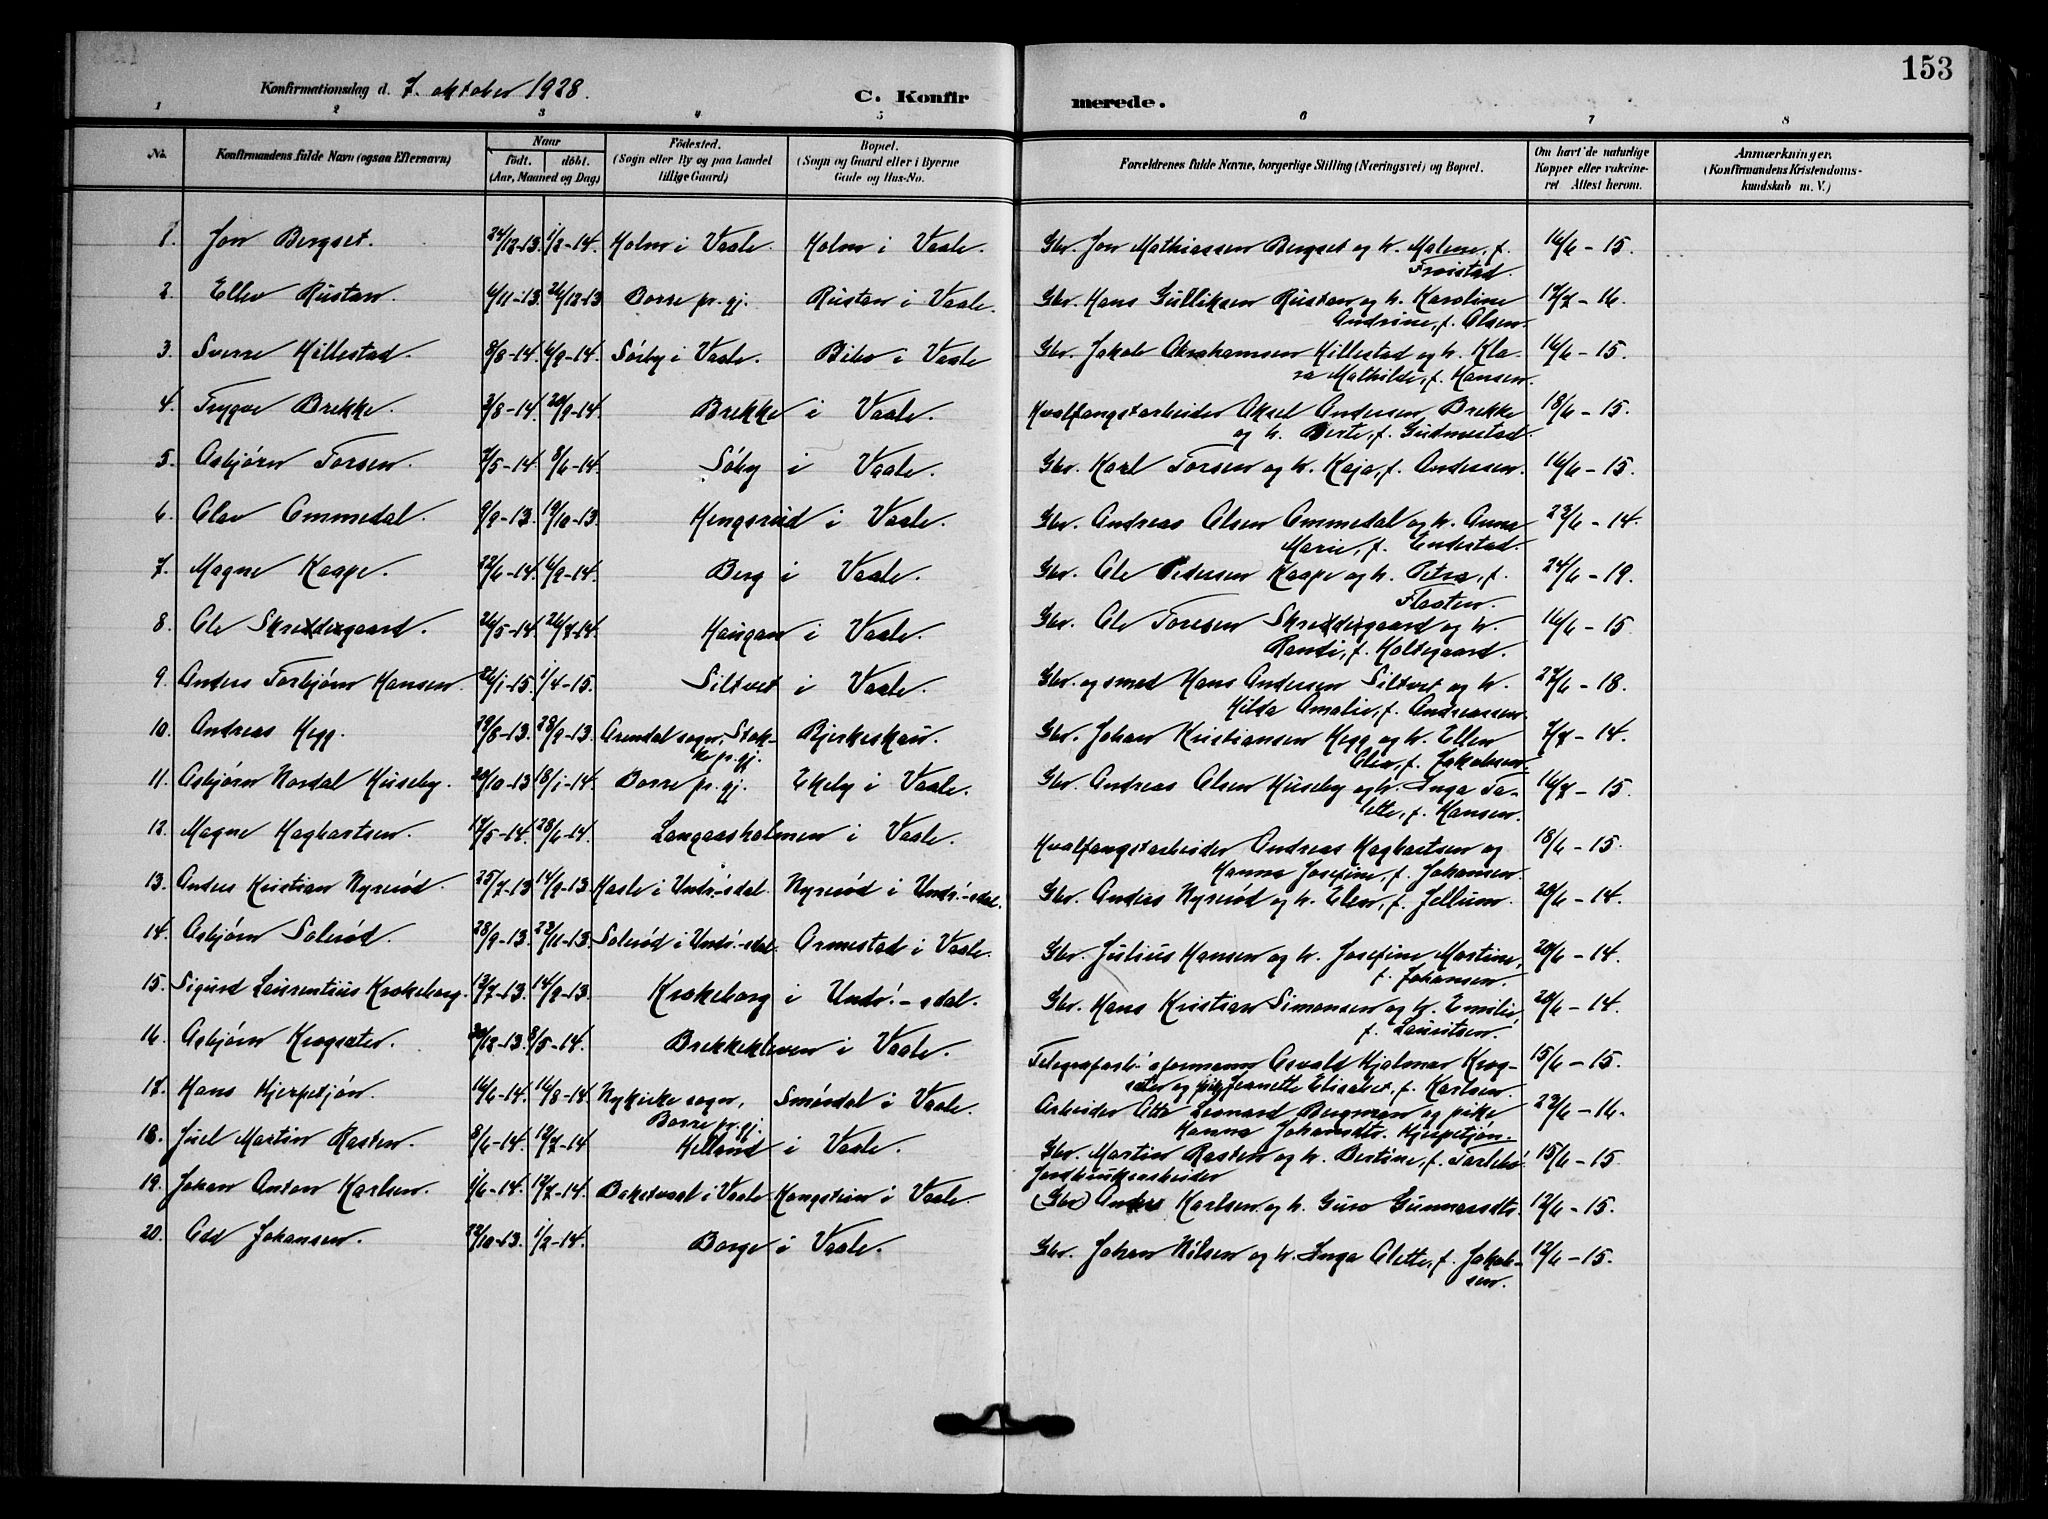 153
Konfirmationsdag d. 7. oktober 1928.
C. Konfirmerede.
1 2 3 4 5 6 7 8
No.
Konfirmandens fulde Navn (ogsaa Efternavn)
Naar
födt. döbt.
(Aar, Maaned og Dag)
Födested.
(Sogn eller By og paa Landet
tillige Gaard)
Bopæl.
(Sogn og Gaard eller i Byerne
Gade og Hus-No.
Forældrenes fulde Navne, borgerlige Stilling (Næringsvei) og Bopæl.
Om havt de naturlige
Kopper eller vakcine-
ret Attest herom.
Anmærkninger.
(Konfirmandens Kristendoms-
kundskab m. V.)
1. Jon Bergset. 24/12-13. 1/2-14. Holm i Vaale. Holm i Vaale. Gbr. Jon Mathiassen Bergset og h. Malene, f. 16/6-15.
Frøistad.
2. Ellev Rustan. 6/11-13. 26/12-13 Borre pr.gj. Rustan i Vaale. Gbr. Hans Gulliksen Rustan og h. Karoline 17/7-16.
Andrine, f. Olsen.
3. Sverre Hillestad. 8/8-14. 6/9-14. Sørby i Vaale. Bibo i Vaale Gbr. Jakob Abrahamsen Hillestad og h. Kla- 16/6-15.
ra Mathilde, f. Hansen.
4. Trygve Brekke. 3/8-14. 20/9-14. Brekke i Vaale. Hvalfangstarbeider Aksel Andersen Brekke 18/6-15.
og h. Berte, f. Gudmestad.
5. Asbjørn Torsen. 7/5-14. 8/6-14. Søby i Vaale. Gbr. Karl Torsen og h. Kaja, f. Andersen. 16/6-15.
6. Olav Ommedal. 9/9-13. 19/10-13. Hengsrud i Vaale. Gbr. Andreas Olsen Ommedal og h. Anna 23/6-14.
Marie, f. Endestad.
7. Magne Kaape. 22/6-14. 6/9-14. Berg i Vaale. Gbr. Ole Pedersen Kaape og h. Petra, f. 24/6-19.
Flaaten.
8. Ole Skreddergaard. 26/5-14. 26/7-14. Haugan i Vaale. Gbr. Ole Toresen Skreddergaard og h. 16/6-15.
Randi, f. Holtegaard.
9. Anders Torbjørn Hansen. 26/1-15. 1/4-15. Siltvet i Vaale. Gbr. og smed Hans Andersen Siltvet og h. 27/6-18.
Hilda Amalie, f. Andreassen.
10. Andreas Hegg. 29/8-13. 28/9-13. Arendal sogn, Stok- Bjerkeskau. Gbr. Johan Kristiansen Hegg og h. Ellen 7/7-14.
ke pr.gj. Olea, f. Jakobsen.
11. Asbjørn Nordal Huseby. 20/10-13 18/1-14. Borre pr. gj. Ekeby i Vaale. Gbr. Andreas Olsen Huseby og h. Inga Ta- 16/7-15.
lette, f. Hansen.
12. Magne Hagbartsen. 17/5-14. 28/6-14. Langaasholmen i Vaale. Hvalfangstarbeider Andreas Hagbartsen og 18/6-15.
Hanna Josefine, f. Johansen.
13. Anders Kristian Nyrerød. 25/7-13 14/9-13. Hasle i Undr.-sdal. Nyrerød i Undr.-sdal. Gbr. Anders Nyrerød og h. Elen, f. Jellum. 20/6-14.
14. Asbjørn Solerød. 28/9-13. 23/11-13. Solerød i Undr.-sdal. Ormestad i Vaale. Gbr. Julius Hansen og h. Josefine Martine, 20/6-14.
f. Johansen.
15. Sigurd Laurentius Krokeborg. 13/7-13. 14/9-13. Krokeborg i Undr.-sdal. Gbr. Hans Kristian Simonsen og h. Emilie, 20/6-14.
f. Lauritsen.
16. Asbjørn Krogsæter. 30/12-13. 8/5-14. Brekkekleven i Vaale. Telegrafarb.'sformann Osvald Hjalmar Krog- 15/6-15.
sæter og Jeanette Elisabet, f. Karlsen.
17. Hans Hjerpetjøn. 16/6-14. 16/8-14. Nykirke sogn, Smørdal i Vaale. Arbeider Otto Leonard Bergman og pike 23/6-16.
Borre pr.gj. Hanna Johansdtr. Hjerpetjøn.
18. Juel Martin Rasten. 8/6-14. 12/7-14 Helland i Vaale. Gbr. Martin Rasten og h. Bertine, f. Torlebø. 15/6-15.
Jordbruksarbeider
19. Johan Anton Karlsen. 1/6-14. 12/7-14. Bakstvaal i Vaale. Hangstein i Vaale. (Gbr.) Anders Karlsen og h. Guro Gunnarsdtr. 12/6-15.
20. Odd Johansen. 22/10-13. 1/2-14. Borge i Vaale. Gbr. Johan Nilsen og h. Inga Olette, f. Jakob- 12/6-15.
sen.